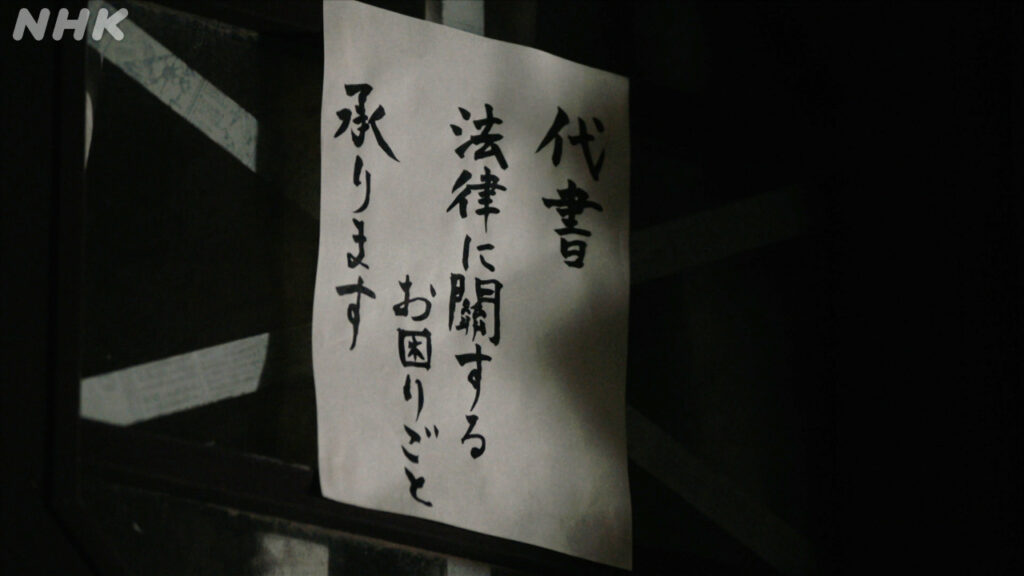 NHK
代書
法律に關する
お困りごと
承ります